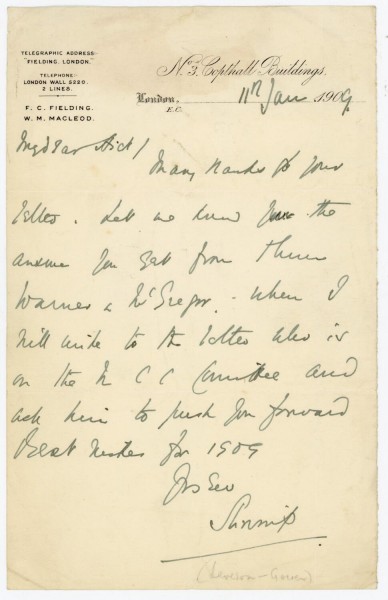 TELEGRAPHIC ADDRESS:-
"FIELDING, LONDON."
TELEPHONE:-
LONDON WALL 5220.
2 LINES.
F. C. FIELDING.
W. M. MACLEOD.
Nº 3, Copthall Buildings,
London, 11th Jan 1909
E.C.
My dear Dick/
Many thanks for your
letter. Let me know the
answer you get from them
Warner & McGregor. When I
will write to the latter who is
on the M C C Committee and
ask him to push you forward
Best wishes for 1909
Yrs Ever
Shrimp
(Leveson-Gower)